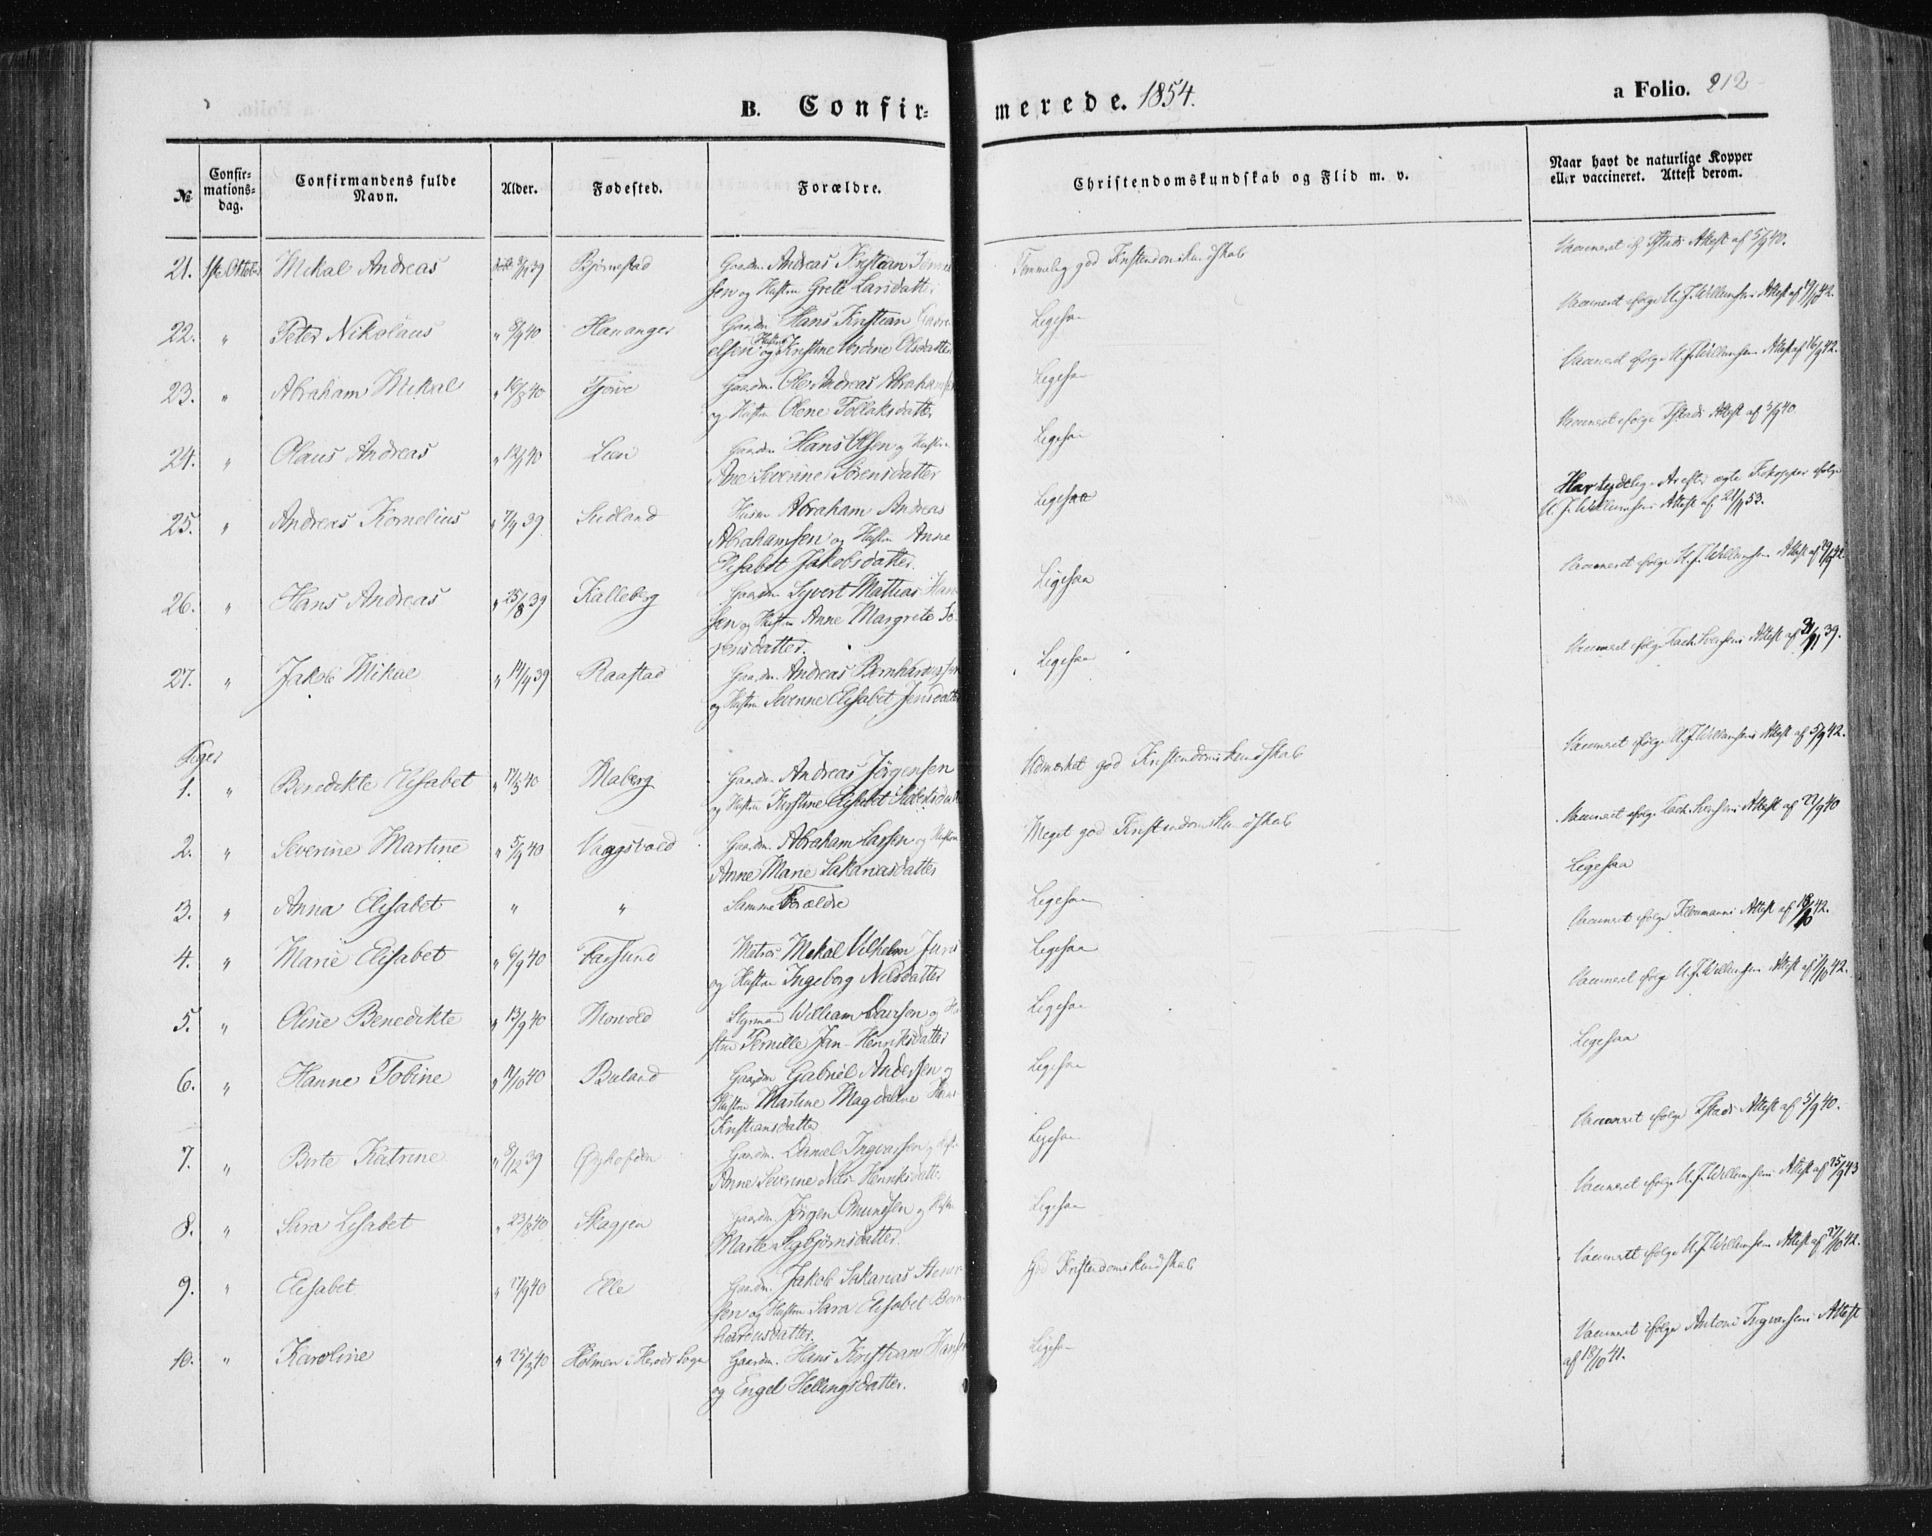 B. Confir-
merede. 1854.
a Folio. 212
№
Confir-
mations-
dag.
Confirmandens fulde
Navn.
Alder.
Fødested.
Forældre.
Christendomskundskab og Flid m. v.
Naar havt de naturlige Kopper
eller vaccineret. Attest derom.
21. 1ste Oktober Mikal Andreas 39 Bjørnestad Gaardm. Andreas Kristian
sen og Hustru Grete Larsdatter
Temmelig god Kristendomskundskab
Vaccineret if. Tstads Attest af 5/9 40.
22. " Peter Nikolaus " 8/9 40 Hananger Gaardm. Hans Kristian
elsen og Hustru Kristine Olsdatter
Ligesaa
Vaccineret ifølge U. J. Willumsens Attest af 42.
23. " Abraham Mikal " 10/8 40 Tjørve Gaardm. Ole Andreas Abrahamsen
og Hustru Olene Tollaksdatter
Ligesaa
Vaccineret ifølge U. J. Willumsens Attest af 16/9 42.
24. " Olaus Andreas " 40 Lien Gaardm. Hans Olsen og Hustru
Ane Severine Sørensdatter
Ligesaa
Vaccineret ifølge Tstads Attest af 3/9 40.
25. " Andreas Kornelius " 7/9 39 Sudland Husm. Abraham Andreas
Abrahamsen og Hustru Anne
Elisabet Jakobsdatter.
Ligesaa
Har tydelige Ar efter ægte Kokopper ifølge
U. J. Willumsens Attest af 53.
26. " Hans Andreas " 25/8 39 Kalleberg Gaardm. Syvert Mattias Han
sen og Hustru Anne Margrete Sø-
rensdatter.
Ligesaa
Vaccineret ifølge U. J. Willumsens Attest af 42
27. " Jakob Mikal " 14/9 39 Raastad Gaardm. Andreas Bernhardussen
og Hustru Severine Elisabet Jensdatter
Ligesaa
Vaccineret ifølge Attest af 39.
Piger
1. " Benedikte Elisabet " 17/3 40 Maberg Gaardm. Andreas Jørgensen
og Hustru Kirstine Elisabet
Udmærket god Kristendomskundskab
Vaccineret ifølge U. J. Willumsens Attest af 5/9 42.
2. " Severine Martine " 5/9 40 Vaagsvold Gaardm. Abraham Larsen og Hustru
Anne Marie Sakariasdatter
Meget god Kristendomskundskab
Vaccineret ifølge Attest af 27/9 40
3. " Anna Elisabet " " Samme Forældre
Ligesaa
Ligesaa
4. " Marie Elisabet " 6/9 40 Farsund Matros Mekal Vilhelm
og Hustru Ingeborg Nilsdatter
Ligesaa
Vaccineret ifølge Attest af 18/10 42.
5. " Oline Benedikte " 13/9 40 Styrmand William Larsen og Hu
stru Pernille Jan-Henriksdatter
Ligesaa
Vaccineret ifølge U. J. Willumsens Attest af 42.
6. " Hanne Tobine 40 Buland Gaardm. Gabriel Andersen og
Hustru Martine Magdalene Hans
Kristiansdatter
Ligesaa
Ligesaa
7. " Birte Katrine " 8/12 39 Gaardm. Daniel Ingvarsen og Hustru
Anne Severine Nils-Henriksdatter.
Ligesaa
Vaccineret ifølge Tstads Attest af 5/9 40.
8. " Sara Lisabet " 23/8 40 Skagjen Gaardm. Jørgen Omundsen og Hustru
Marte Sigbjørnsdatter.
Ligesaa
Vaccineret ifølge U. J. Willumsens Attest af 25/9 43
9. " Elisabet " 17/9 40 Elle Gaardm. Jakob Sakarias
sen og Hustru Sara Elisabet Bern
hardusdatter.
God Kristendomskundskab
Vaccineret ifølge U. J. Willumsens Attest af 42.
10. " Karoline " 40 Holmen i Herads Sogn Gaardm. Hans Kristian Hansen
og Engel Hellingsdatter.
Ligesaa
Vaccineret ifølge Anton Ingvarsens Attest
af 18/10 41.